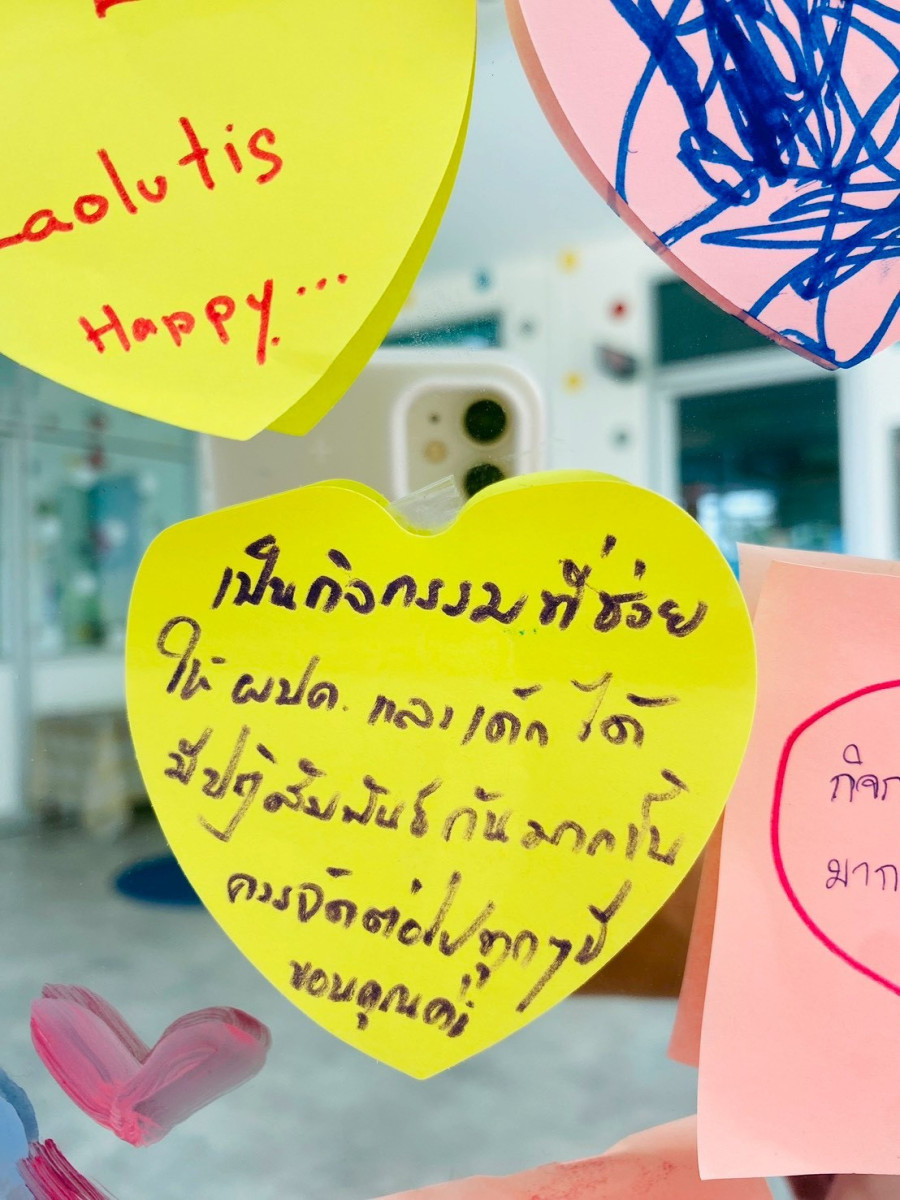 aolutis
Happy...
เป็นกิจกรรมที่ช่วย
ให้ ผปค. และเด็ก ได้
มีปฏิสัมพันธ์กันมากขึ้น
ควรจัดต่อไปทุกๆปี
ขอบคุณค่ะ
กิจก
มาก